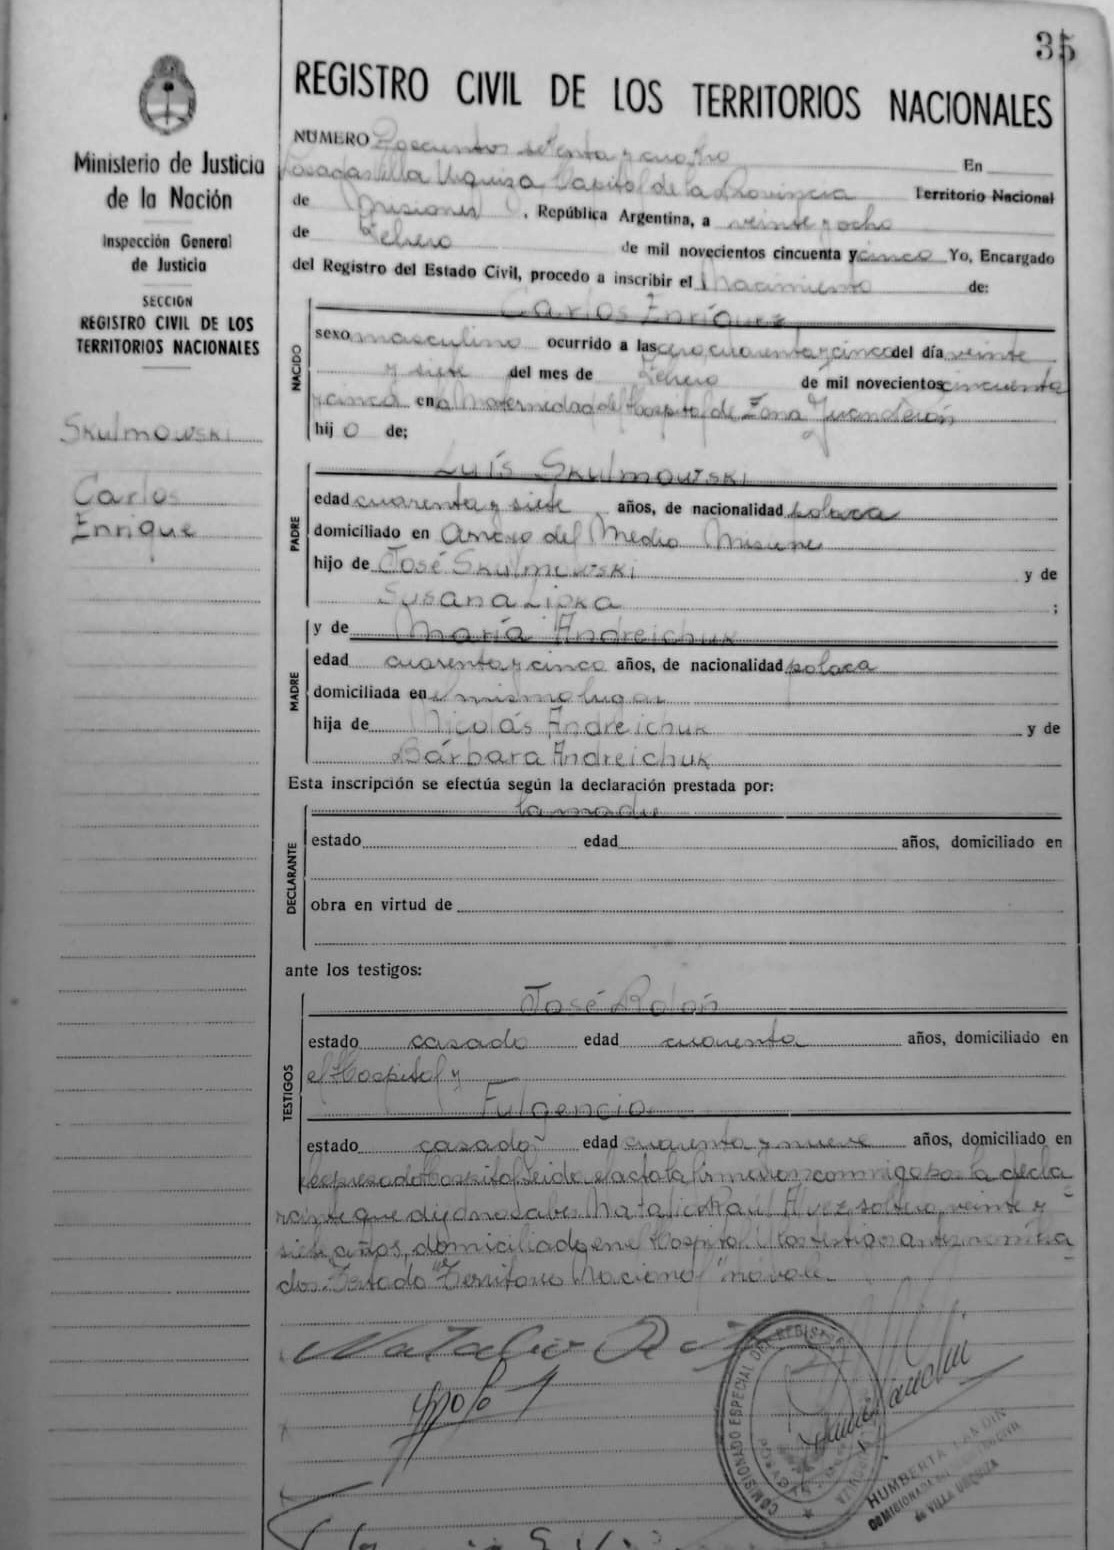 35
Ministerio de Justicia
de la Nación
Inspección General
de Justicia
SECCION
REGISTRO CIVIL DE LOS
TERRITORIOS NACIONALES
Skulmowski
Carlos
Enrique
REGISTRO CIVIL DE LOS TERRITORIOS NACIONALES
NUMERO Doscientos setenta y cuatro En
Posadas Villa Urquiza, Capital de la Provincia Territorio Nacional
de Misiones, República Argentina, a veinte y ocho
de Febrero de mil novecientos cincuenta y cinco Yo, Encargado
del Registro del Estado Civil, procedo a inscribir el Nacimiento de:
NACIDO
Carlos Enrique
sexo masculino ocurrido a las cero cuarenta y cinco del día veinte
y siete del mes de Febrero de mil novecientos cincuenta
y cinco en la Maternidad del Hospital de Zona Juan Perón
hij o de;
PADRE
Luis Skulmowski
edad cuarenta y siete años, de nacionalidad polaca
domiciliado en Arroyo del Medio Misiones
hijo de José Skulmowski y de
Susana Lipka ;
y de María Andreichuk
MADRE
edad cuarenta y cinco años, de nacionalidad polaca
domiciliada en el mismo lugar
hija de Nicolás Andreichuk y de
Bárbara Andreichuk
Esta inscripción se efectúa según la declaración prestada por:
DECLARANTE
la madre
estado edad años, domiciliado en
obra en virtud de
ante los testigos:
TESTIGOS
José Rolón
estado casado edad cuarenta años, domiciliado en
el Hospital y
Fulgencio
estado casado edad cuarenta y nueve años, domiciliado en
el expresado Hospital. Leida el acta la firmaron conmigo por la decla
rante que dijo no saber Natalio Raúl soltero, veinte y
siete años, domiciliado en el Hospital y los testigos antes nombra
dos. Testado "Territorio Nacional" no vale.
Natalio R
COMISIONADO ESPECIAL DEL REGISTRO
HUMBERTA
COMISIONADA
de VILLA URQUIZA